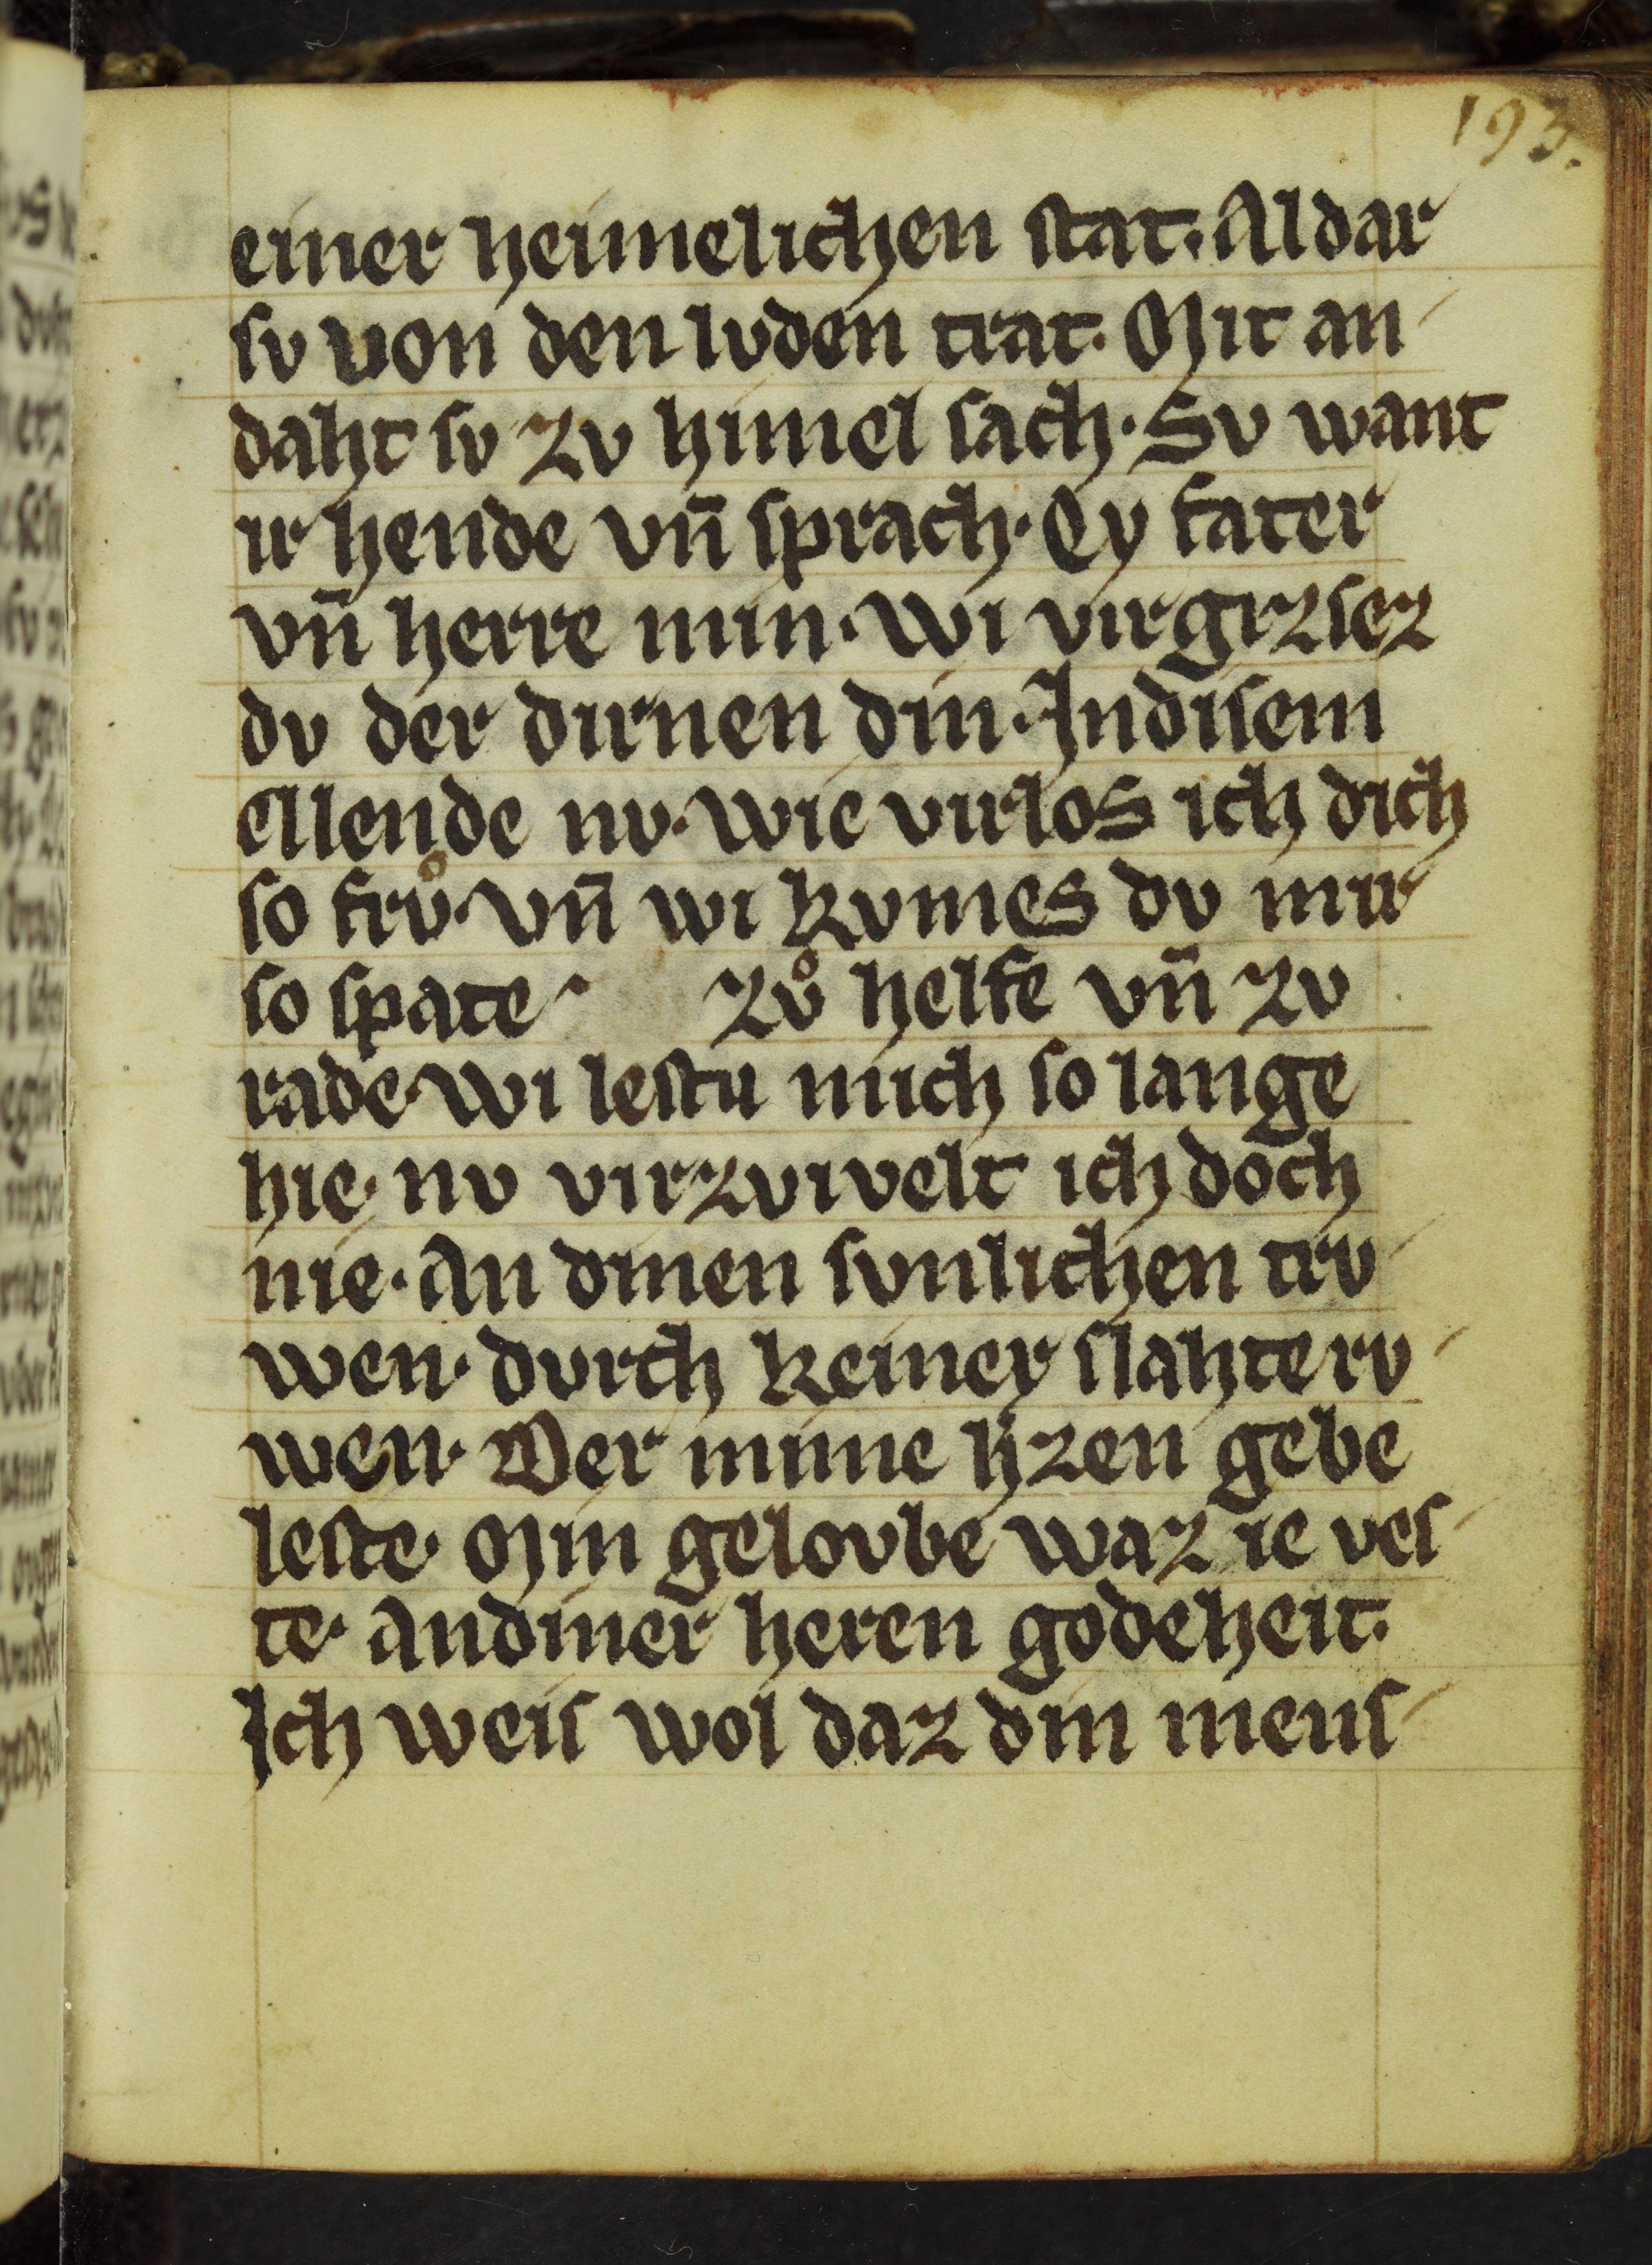 193.
einer heimelichen stat. Aldar
sv von den lvden trat. Mit an
daht sv zv himel sach. Sv want
ir hende vn̄ sprach. Ey fater
vn̄ herre min. wi virgizsez
dv der dirnen din. Indisem
ellende nv. wie virlos ich dich
so frv̊. vn̄ wi kvmes dv mir
so spate zv̊ helfe vn̄ zv
rade. wi lestu mich so lange
hie. nv virzvivelt ich doch
nie. An dinen svnlichen trv
wen. dvrch keiner slahte rv
wen. Der minne hizen gebe
leste. Min gelovbe waz ie ves
te. Andiner heren godeheit.
Ich weis wol daz din mens